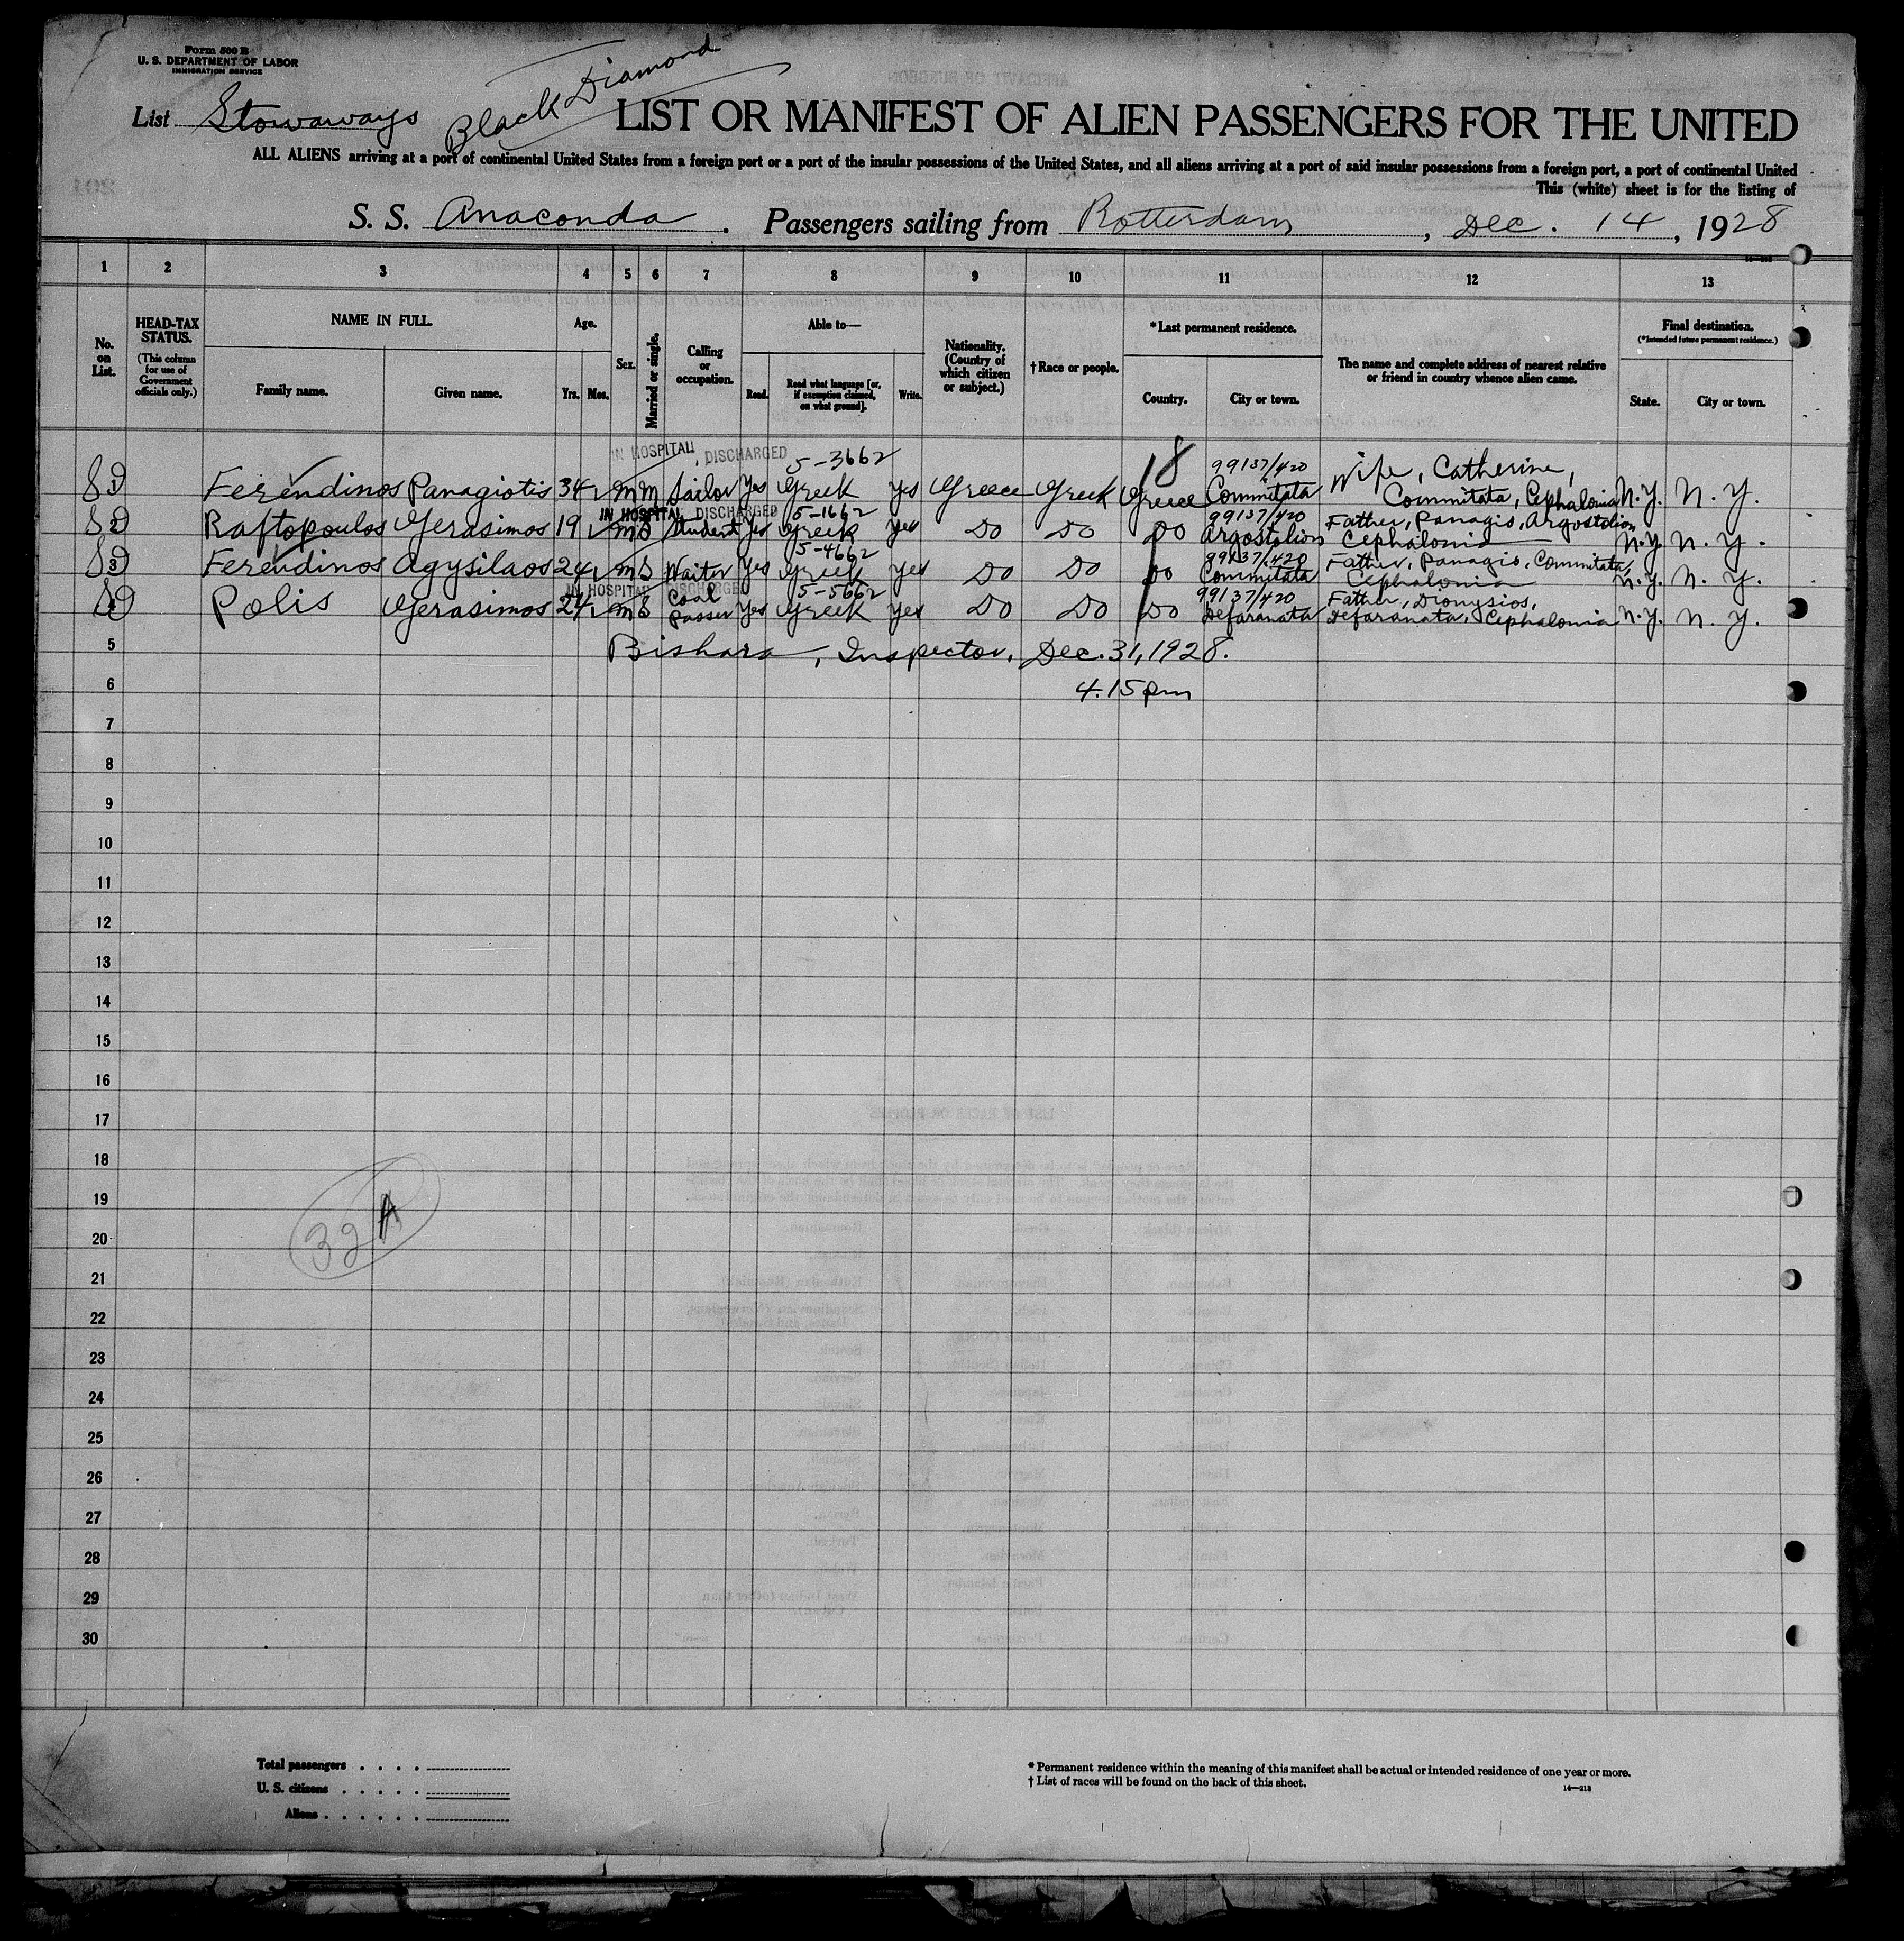 Form 500 B
U. S. DEPARTMENT OF LABOR
IMMIGRATION SERVICE
List Stowaways Black Diamond
LIST OR MANIFEST OF ALIEN PASSENGERS FOR THE UNITED
ALL ALIENS arriving at a port of continental United States from a foreign port or a port of the insular possessions of the United States, and all aliens arriving at a port of said insular possessions from a foreign port, a port of continental United
This (white) sheet is for the listing of
S. S. Anaconda. Passengers sailing from Rotterdam, Dec. 14, 1928
1 2 3 4 5 6 7 8 9 10 11 12 13
No. on List.
HEAD-TAX STATUS.
(This column for use of Government officials only.)
NAME IN FULL.
Family name. Given name.
Age.
Yrs. Mos.
Sex.
Married or single.
Calling or occupation.
Able to—
Read. Read what language [or, if exemption claimed, on what ground]. Write.
Nationality. (Country of which citizen or subject.)
† Race or people.
*Last permanent residence.
Country. City or town.
The name and complete address of nearest relative or friend in country whence alien came.
Final destination.
(*Intended future permanent residence.)
State. City or town.
IN HOSPITAL, DISCHARGED 5-3662 18 99137/420
1 Ferendinos Panagiotis 34 m m Sailor Yes Greek Yes Greece Greek Greece Commitata Wife, Catherine, Commitata, Cephalonia N.Y. N.Y.
IN HOSPITAL DISCHARGED 5-1662 99137/420
2 Raftopoulos Gerasimos 19 m S Student Yes Greek Yes Do Do Do Argostolion Father, Panagis, Argostolion Cephalonia N.Y. N.Y.
5-4662 99137/420
3 Ferendinos Agysilaos 24 m S Waiter Yes Greek Yes Do Do Do Commitata Father, Panagis, Commitata, Cephalonia N.Y. N.Y.
IN HOSPITAL DISCHARGED 5-5662 99137/420
4 Polis Gerasimos 24 m S Coal Passer Yes Greek Yes Do Do Do Defaranata Father, Dionysios, Defaranata, Cephalonia N.Y. N.Y.
5 Bishara, Inspector, Dec. 31, 1928.
6 4.15 pm
7
8
9
10
11
12
13
14
15
16
17
18
19
32 A
20
21
22
23
24
25
26
27
28
29
30
Total passengers . . . . .
U. S. citizens . . . . .
Aliens . . . . . .
* Permanent residence within the meaning of this manifest shall be actual or intended residence of one year or more.
† List of races will be found on the back of this sheet.
14—213